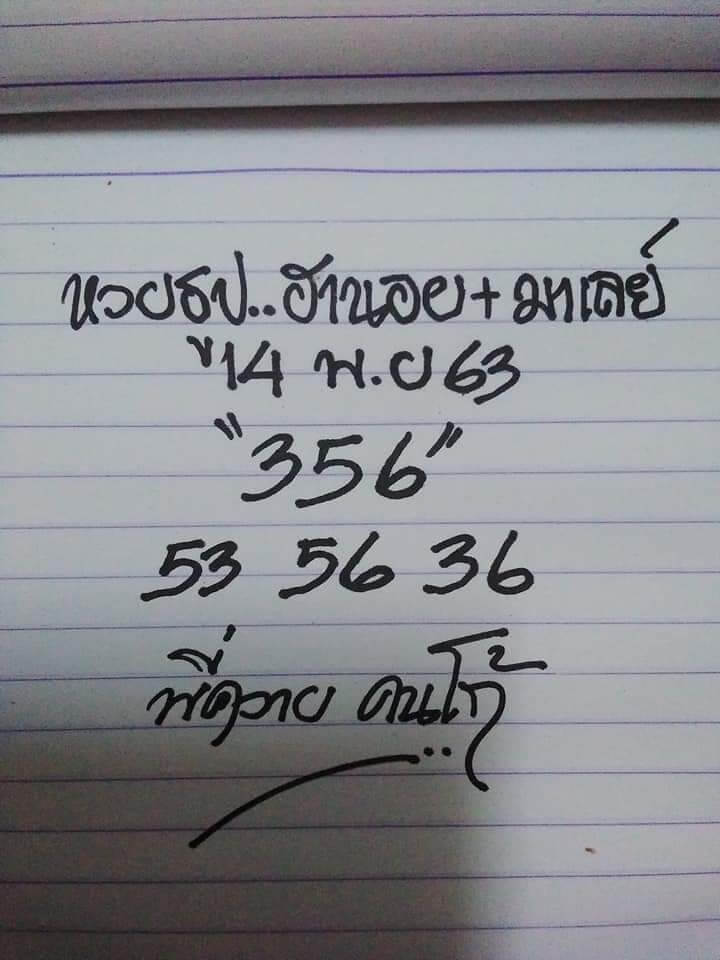 หวยธูป..ฮานอย+มาเลย์
"14 พ.ย 63
"356"
53 56 36
พี่ควาย คนโก้..